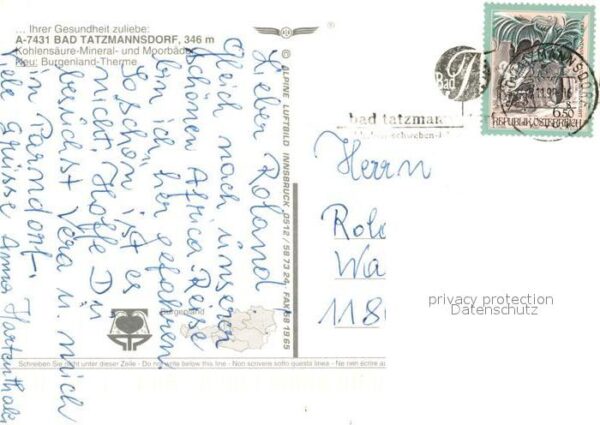 ... Ihrer Gesundheit zuliebe:
A-7431 BAD TATZMANNSDORF, 346 m
Kohlensäure-Mineral- und Moorbäder
Neu: Burgenland-Therme
Lieber Roland
Gleich nach unserer
schönen Africa-Reise
bin ich her gefahren
So schön ist es
nicht. Hoffe Du
besuchst Vera u. mich
in Parndorf.
Viele Grüsse Anna
© ALPINE LUFTBILD INNSBRUCK 0512 / 58 73 24, FAX 58 19 65
Burgenland
Schreiben Sie nicht unter dieser Zeile - Do not write below this line - Non scrivere sotto questa linea - Ne rien écrire au
Bad
bad tatzman
6.50
REPUBLIK ÖSTERREICH
Herrn
Rol
Wa
118
privacy protection
Datenschutz